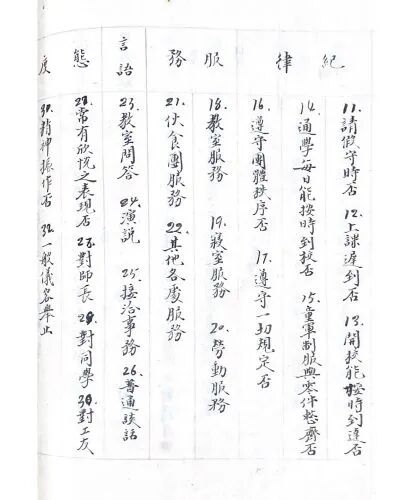 紀律
11.請假守時否 12.上課遲到否 13.開校能按時到達否
14.通學每日能按時到校否 15.童軍制服與零件整齊否
16.遵守團體秩序否 17.遵守一切規定否
服務
18.教室服務 19.寢室服務 20.勞動服務
21.伙食團服務 22.其他各處服務
言語
23.教室問答 24.演說 25.接洽事務 26.普通談話
態度
27.常有欣悅之表現否 28.對師長 29.對同學 30.對工友
31.精神振作否 32.一般儀容舉止